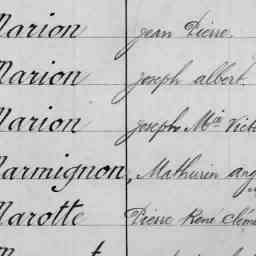 Marion Jean Pierre.
Marion Joseph albert.
Marion Joseph Mie Vict
Marmignon, Mathurin ang
Marotte Pierre René Clém